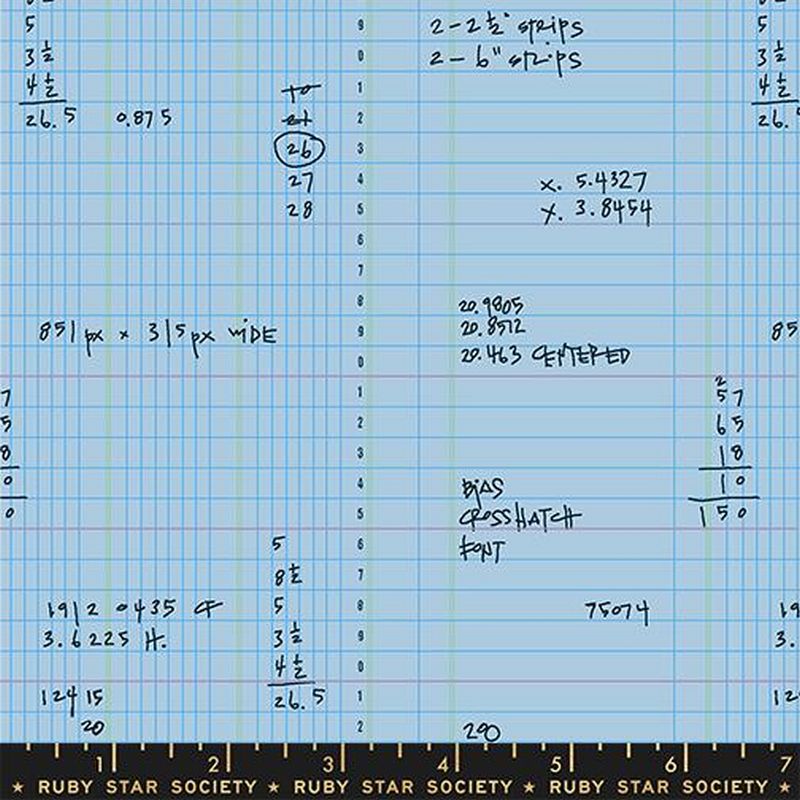 5
3 ½
4 ½
26.5 0.875
26
27
28
9
0
1
2
3
4
5
6
7
8
9
0
1
2
3
4
5
6
7
8
9
0
1
2
2 - 2 ½" strips
2 - 6" strips
x. 5.4327
y. 3.8454
5
3 ½
4 ½
26.
851 px x 315 px WIDE
20.9805
20.8572
20.463 CENTERED
85
7
5
8
0
0
2
57
65
18
10
150
BIAS
CROSSHATCH
FONT
5
8 ½
5
3 ½
4 ½
26.5
1912 0435 CF
3.6225 H.
12415
20
75074
290
19
3.
12
1 2 3 4 5 6 7
★ RUBY STAR SOCIETY ★ RUBY STAR SOCIETY ★ RUBY STAR SOCIETY ★